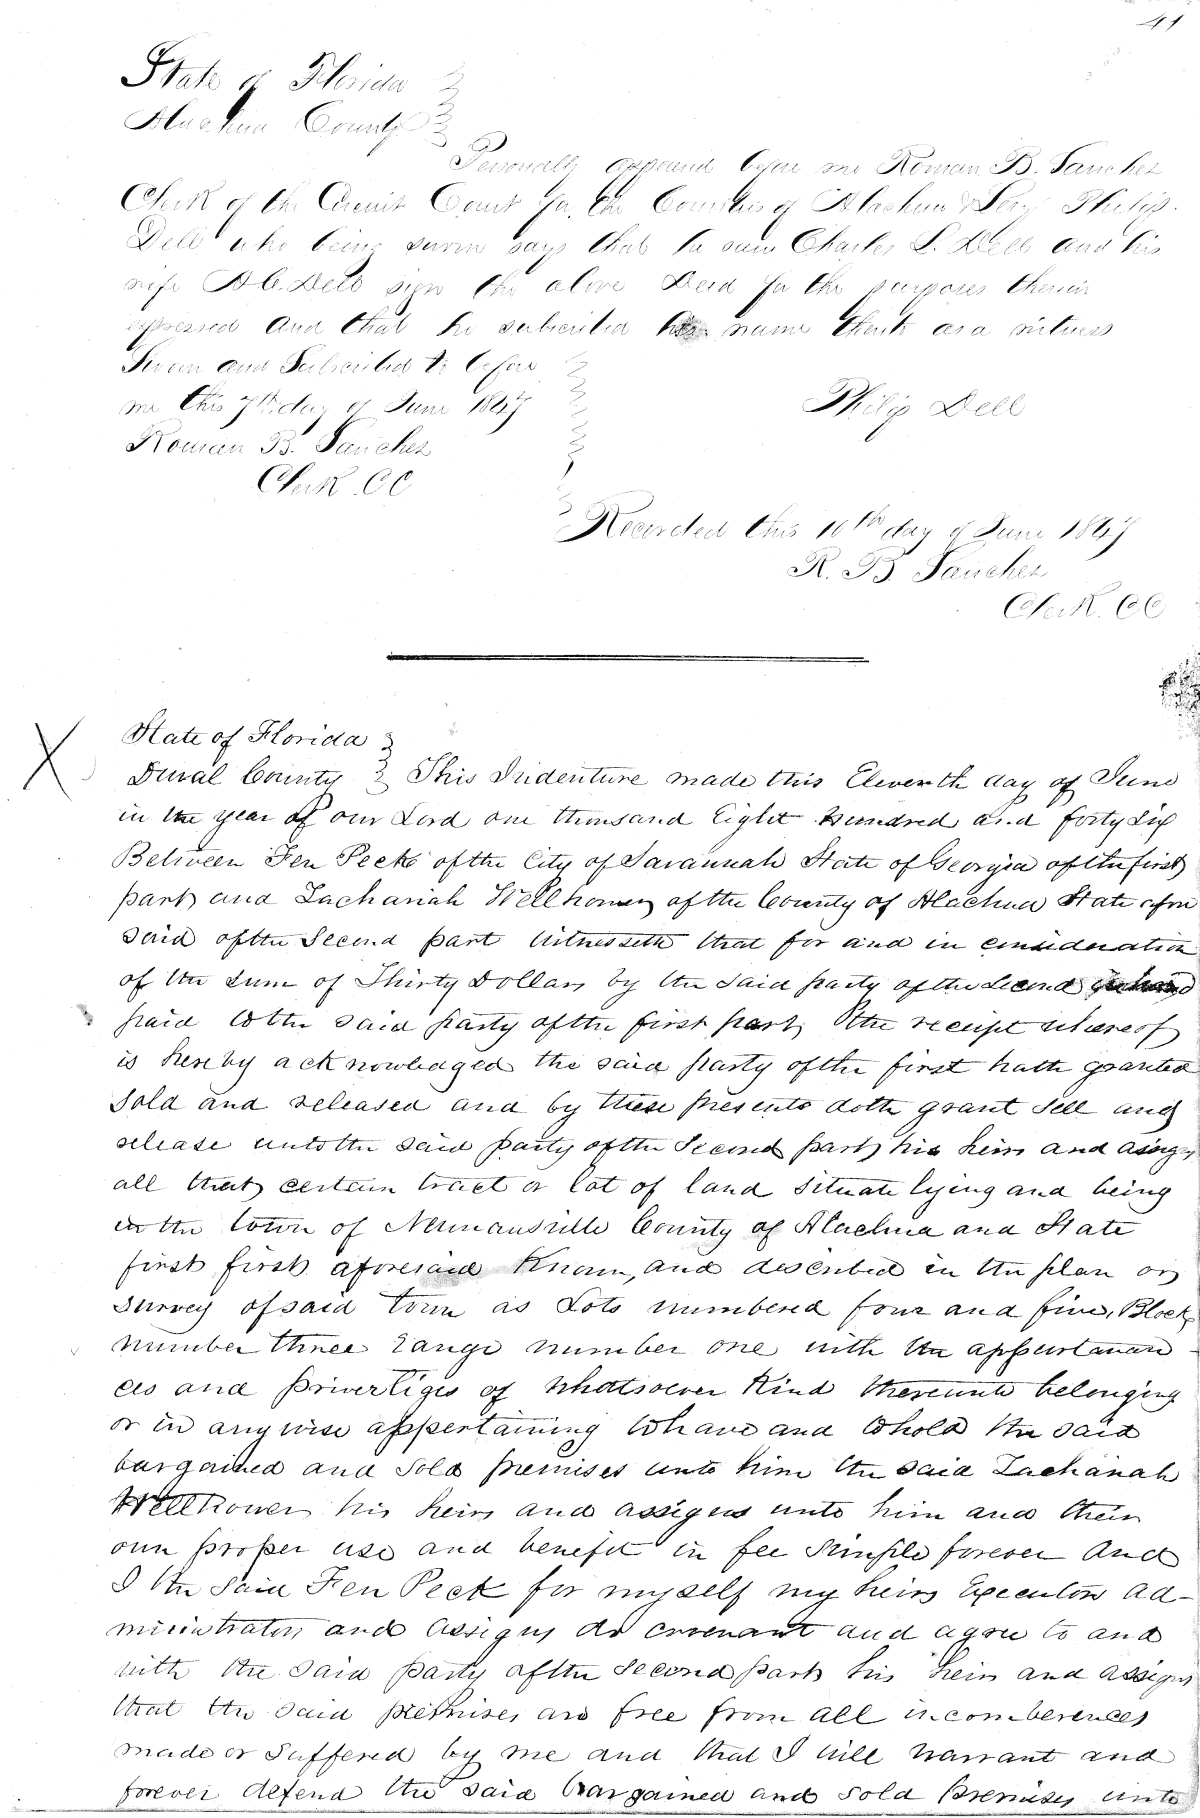 41
State of Florida
Alachua County
Personally appeared before me Roman B. Sanchez
Clerk of the Circuit Court for the Counties of Alachua & Levy Philip
Dell who being sworn says that he saw Charles L. Dell and his
wife A C. Dell sign the above Deed for the purposes therein
expressed and that he subscribed his name thereto as a witness
Sworn and Subscribed to before
me this 7th day of June 1847
Philip Dell
Roman B. Sanchez
Clerk CC
Recorded this 10th day of June 1847
R. B. Sanchez
Clerk. CC
X
State of Florida
Duval County This Indenture made this Eleventh day of June
in the year of our Lord one thousand Eight hundred and forty six
Between Fen Peck of the City of Savannah State of Georgia of the first
part and Zachariah Wellhower of the County of Alachua State afore
said of the Second part Witnesseth that for and in consideration
of the sum of Thirty Dollars by the said party of the Second in hand
paid to the said party of the first part, the receipt whereof
is hereby acknowledged the said party of the first hath granted
Sold and released and by these presents doth grant sell and
release unto the said party of the Second part his heirs and assigns
all that certain tract or lot of land situate lying and being
in the town of Newnansville County of Alachua and State
first first aforesaid Known, and described in the plan or
survey of said Town as Lots numbered four and five, Block
number three range number one with the appurtanan
ces and priverliges of whatsoever Kind thereunto belonging
or in any wise appertaining to have and to hold the said
bargained and sold premises unto him the said Zachariah
Wellhower his heirs and assigns unto him and their
own proper use and benefit in fee Simple forever And
I the said Fen Peck for myself my heirs Executors ad-
ministrators and assigns do covenant and agree to and
with the said party of the second part his heirs and assigns
that the said premises are free from all incomberences
made or suffered by me and that I will warrant and
forever defend the said bargained and sold Premises unto